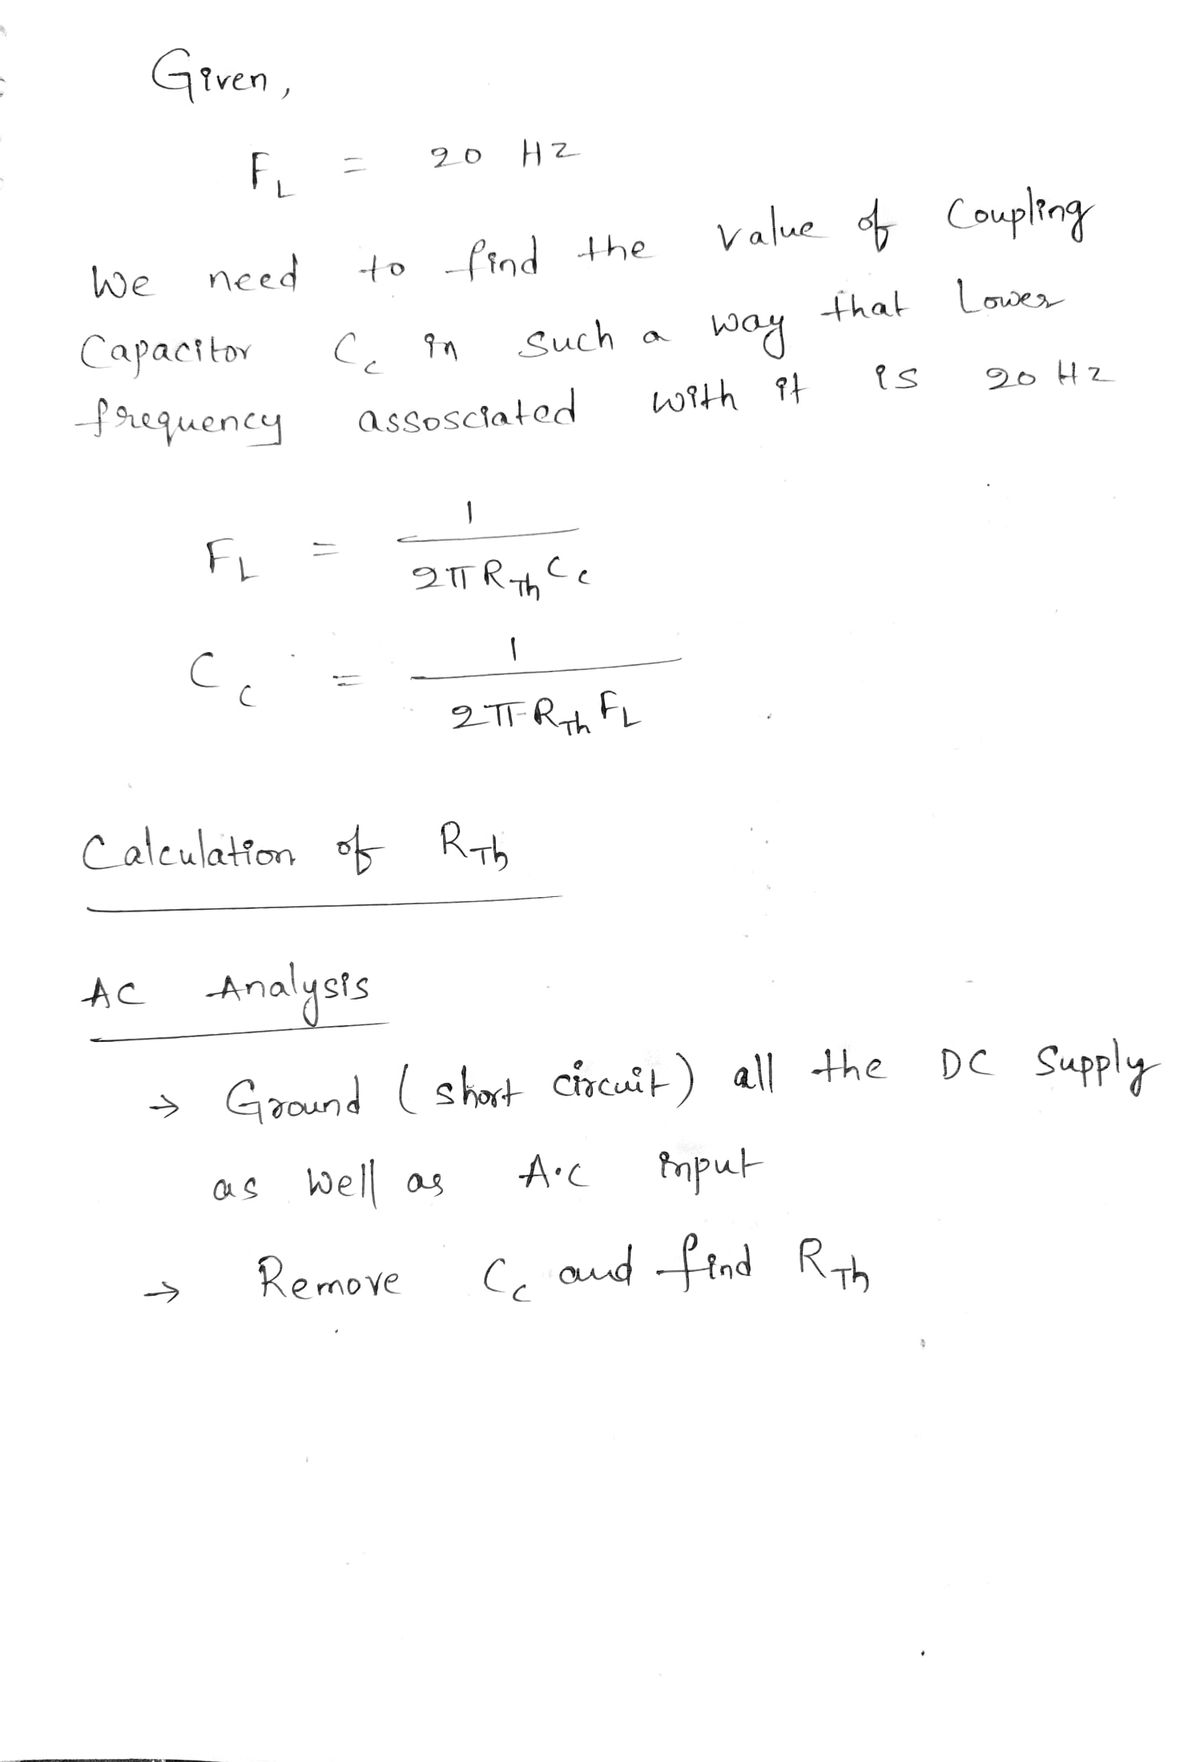 Given,
F_L = 20 Hz
We need to find the value of Coupling
Capacitor C_c in such a way that Lower
frequency assosciated with it is 20 Hz
F_L = 1 / 2π R_Th C_c
C_c = 1 / 2π R_Th F_L
Calculation of R_Th
AC Analysis
→ Ground (short circuit) all the DC Supply
as well as A.C input
→ Remove C_c and find R_Th